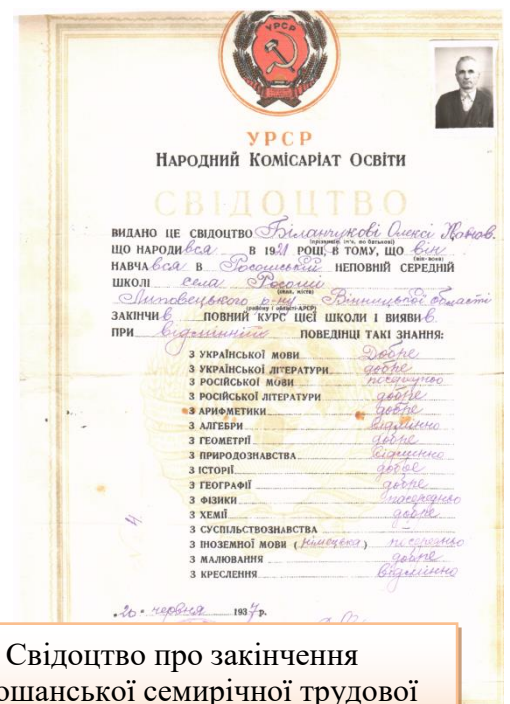 УРСР
УРСР
НАРОДНИЙ КОМІСАРІАТ ОСВІТИ
СВІДОЦТВО
ВИДАНО ЦЕ СВІДОЦТВО Біланчукові Олексі
(прізвище, ім'я, по батькові)
ЩО НАРОДИвся В 1921 РОЦІ, В ТОМУ, ЩО він
(він-вона)
НАВЧАвся В Росошській НЕПОВНІЙ СЕРЕДНІЙ
ШКОЛІ села Росоші
(села, міста)
Липовецького р-ну Вінницької області
(району і області-АРСР)
ЗАКІНЧИв ПОВНИЙ КУРС ЦІЄЇ ШКОЛИ І ВИЯВИв
ПРИ відмінній ПОВЕДІНЦІ ТАКІ ЗНАННЯ:
З УКРАЇНСЬКОЇ МОВИ Добре
З УКРАЇНСЬКОЇ ЛІТЕРАТУРИ добре
З РОСІЙСЬКОЇ МОВИ посередньо
З РОСІЙСЬКОЇ ЛІТЕРАТУРИ добре
З АРИФМЕТИКИ добре
З АЛГЕБРИ відмінно
З ГЕОМЕТРІЇ добре
З ПРИРОДОЗНАВСТВА відмінно
З ІСТОРІЇ добре
З ГЕОГРАФІЇ добре
З ФІЗИКИ посередньо
З ХЕМІЇ добре
З СУСПІЛЬСТВОЗНАВСТВА –
З ІНОЗЕМНОЇ МОВИ (німецька) посередньо
З МАЛЮВАННЯ добре
З КРЕСЛЕННЯ відмінно
№ 4
„20" червня 1937 р.
Свідоцтво про закінчення
ошанської семирічної трудової